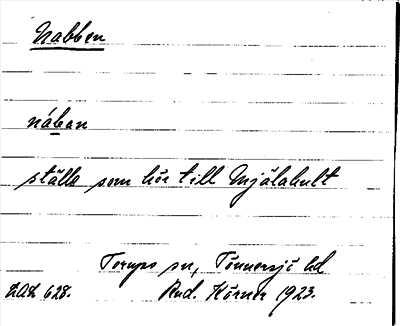 Nabben
nában
ställe som hör till Mjälahult
Torups sn, Tönnersjö hd
LAL 628. Rud. Hörner 1923.